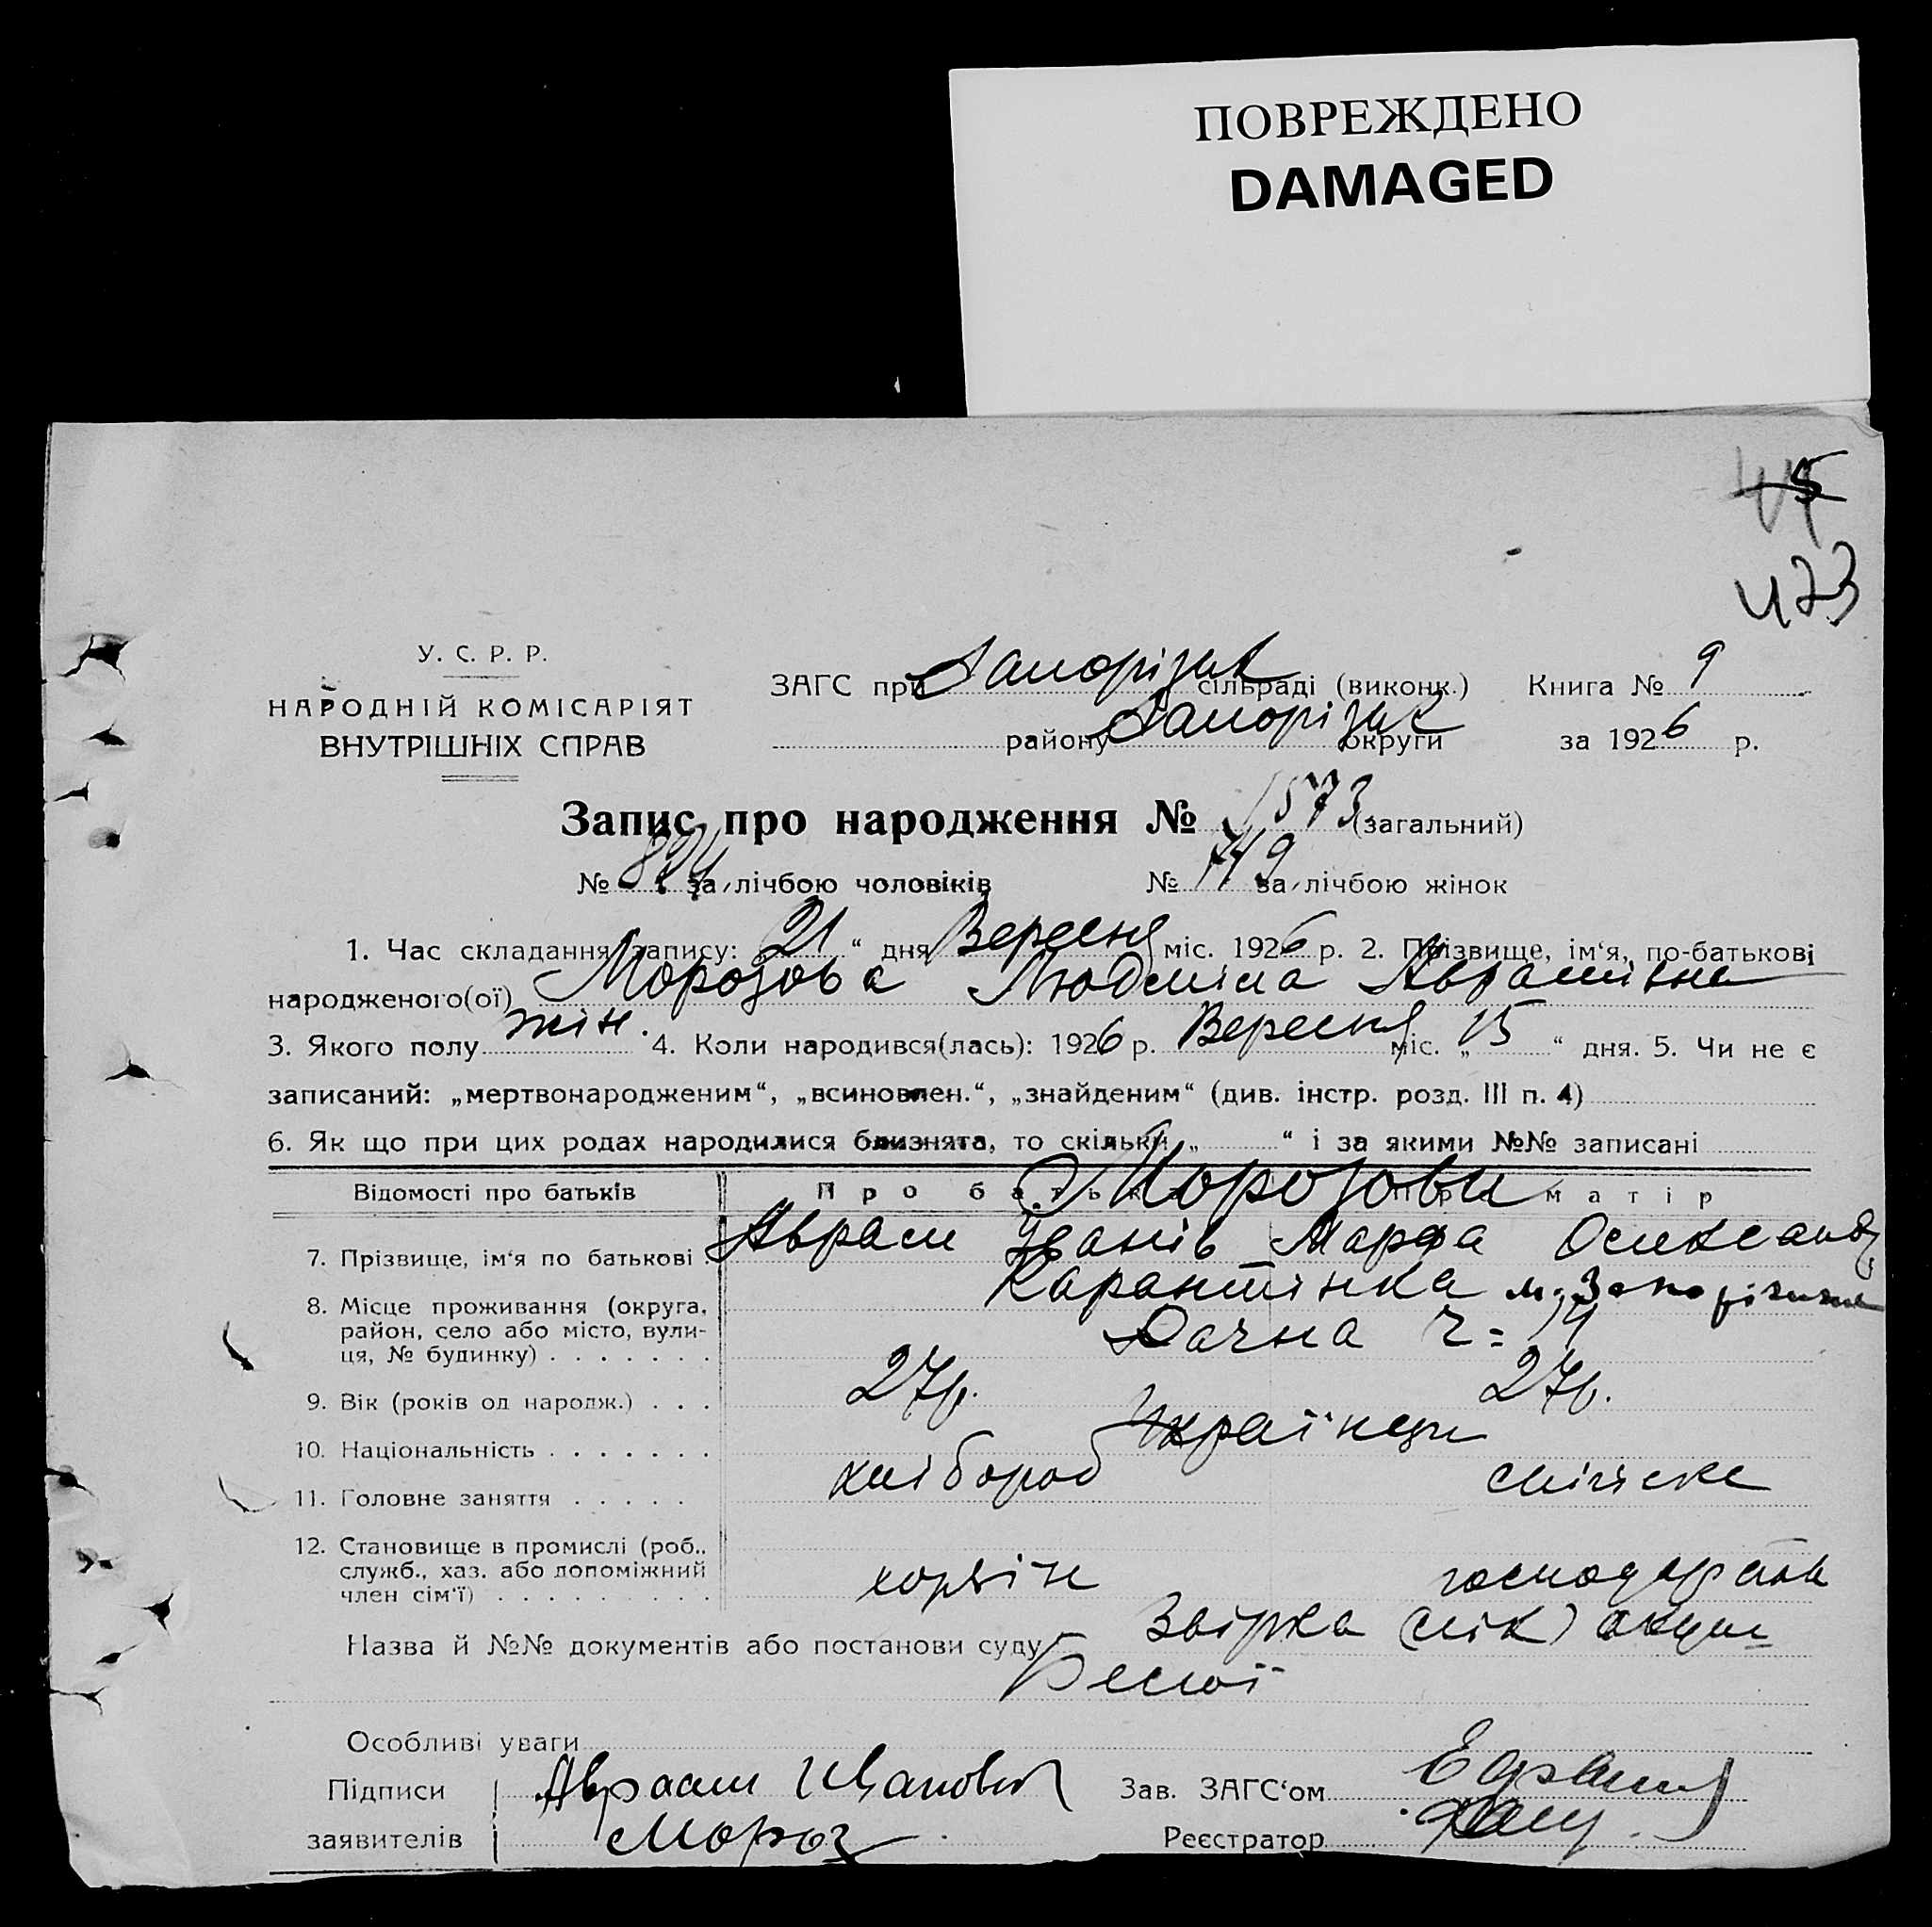 ПОВРЕЖДЕНО
DAMAGED
473
У. С. Р. Р.
НАРОДНІЙ КОМІСАРІЯТ
ВНУТРІШНІХ СПРАВ
ЗАГС при Запоріжж сільраді (виконк.) Книга № 9
району Запоріжж округи за 1926 р.
Запис про народження № 1573 (загальний)
№ 824 за лічбою чоловіків № 749 за лічбою жінок
1. Час складання запису: „21“ дня Вересня міс. 1926 р. 2. Прізвище, ім‘я, по-батькові
народженого(ої) Морозова Людміла Аврамівна
3. Якого полу жін. 4. Коли народився(лась): 1926 р. Вересня міс. „15“ дня. 5. Чи не є
записаний: „мертвонародженим“, „всиновлен.“, „знайденим“ (див. інстр. розд. III п. 4)
6. Як що при цих родах народилися близнята, то скільки „ “ і за якими №№ записані
Відомості про батьків Про батька Про матір
Морозови
7. Прізвище, ім‘я по батькові . Аврам Іванів Марфа Олександ
8. Місце проживання (округа, район, село або місто, вулиця, № будинку) . . . . . . . Карантінка м. Запоріжжя
Дачна ч = 14
9. Вік (років од народж.) . . . 27 р. 27 р.
10. Національність . . . . . . . Українци
11. Головне заняття . . . . . хлібороб
12. Становище в промислі (роб., служб., хаз. або допоміжний член сім‘ї) . . . . . . . . .
Назва й №№ документів або постанови суду Звірка (лік) акуш
Особливі уваги
Підписи Авраам Иванович Зав. ЗАГС‘ом
заявителів Мороз Реєстратор